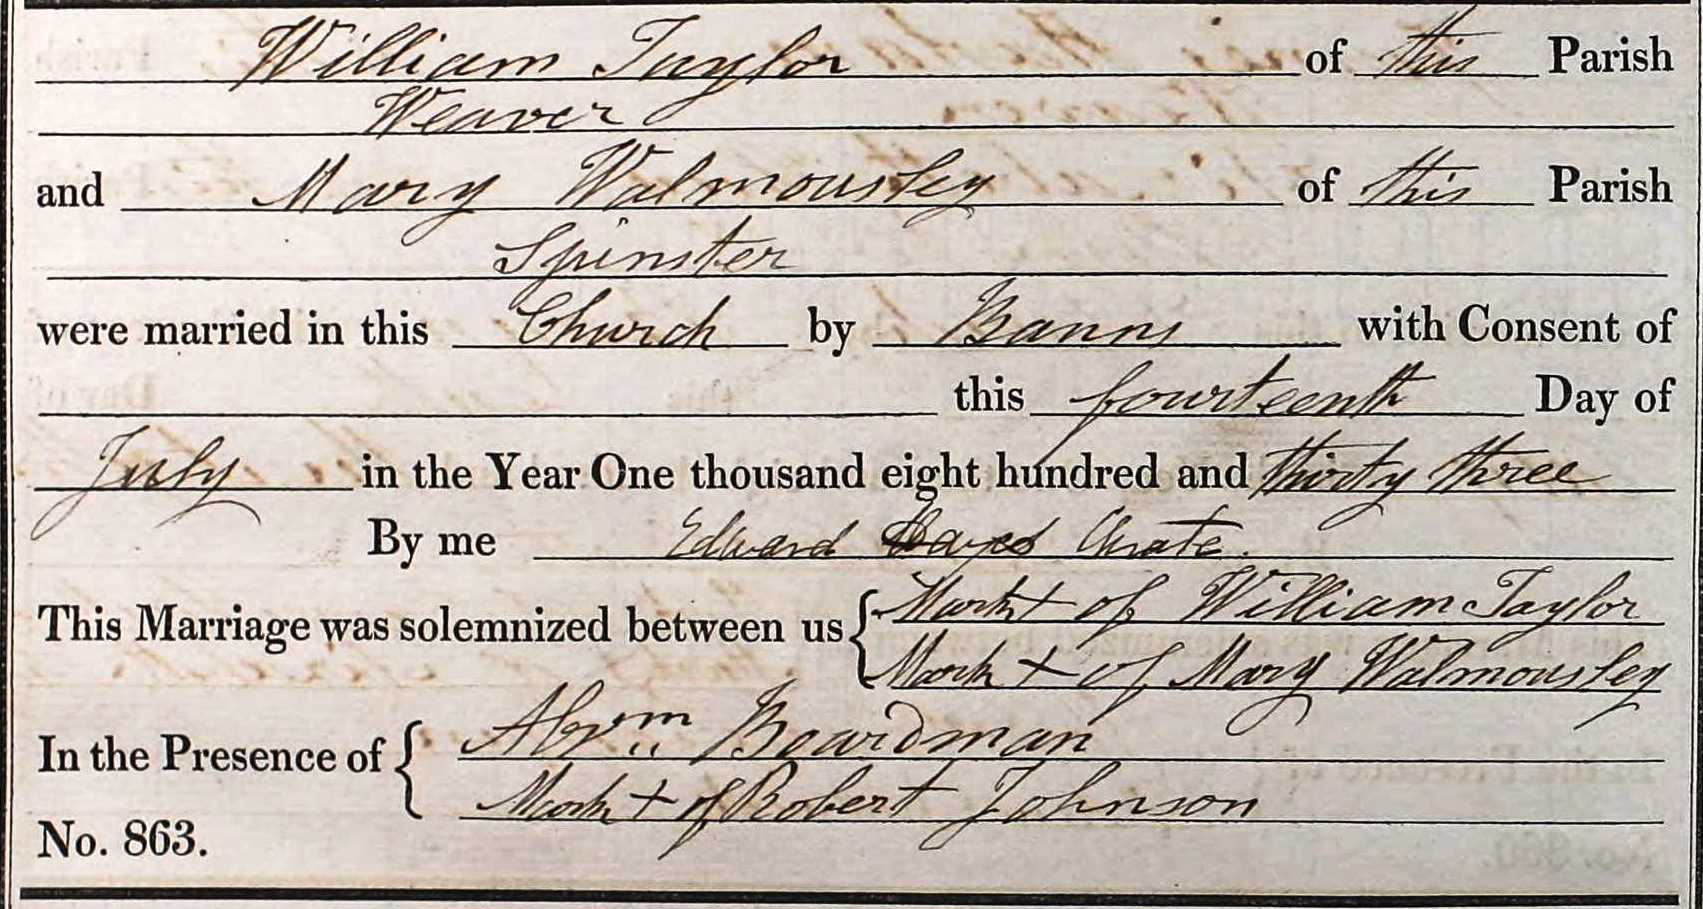 William Taylor of this Parish
Weaver
and Mary Walmousley of this Parish
Spinster
were married in this Church by Banns with Consent of
this fourteenth Day of
July in the Year One thousand eight hundred and thirty three
By me Edward Curate.
This Marriage was solemnized between us { Mark + of William Taylor
Mark + of Mary Walmousley
In the Presence of { Abrm Boardman
Mark + of Robert Johnson
No. 863.